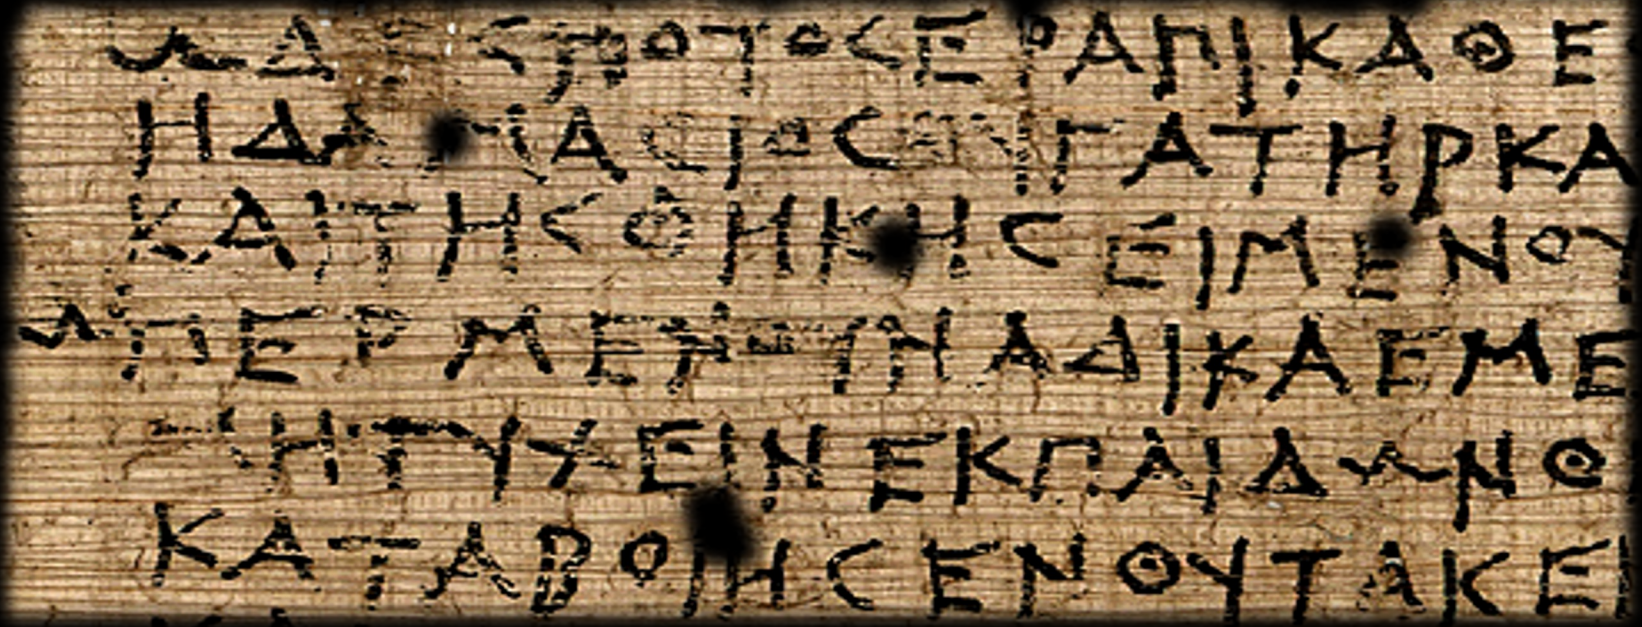 ὦ ΔΕΣΠΟΤ ΟΣΕΡΑΠΙ ΚΑΘΕ
ΗΔΑΜΑΣΙΟΣ ΘΥΓΑΤΗΡ ΚΑ
ΚΑΙ ΤΗΣ ΘΗΚΗΣ ΕΙ ΜΕΝ ΟΥ
ΩΣΠΕΡ ΜΕΝ ΟΥΝ ΑΔΙΚΑ ΕΜΕ
ΤΥΧΕΙΝ ΕΚ ΠΑΙΔΩΝ Θ
ΚΑΤΑΒΟΙΗΣ ΕΝΟΥΤΑ ΚΕΙ